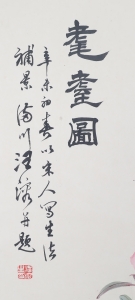 耄耋圖
辛未初春以宋人寫生法
補景 滴川汪溶并題